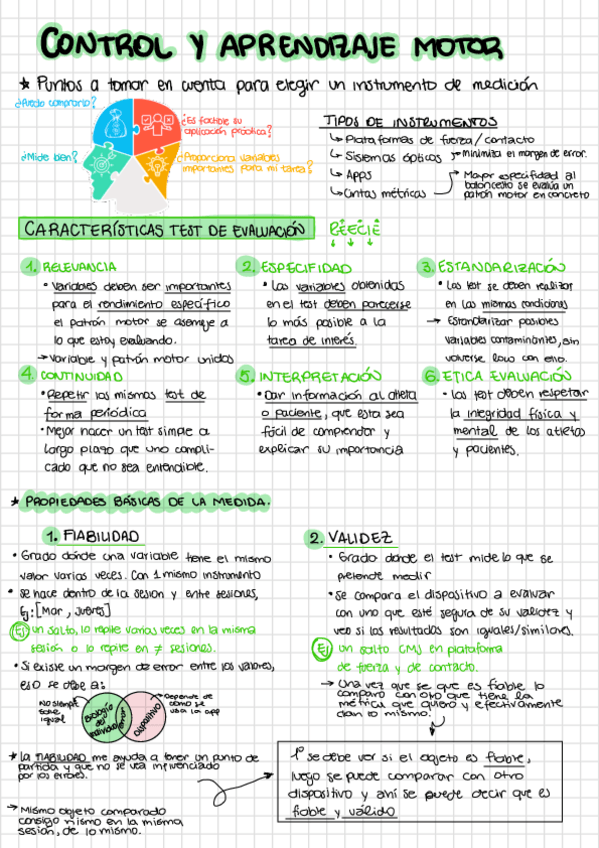 CONTROL Y APRENDIZAJE MOTOR
★ Puntos a tomar en cuenta para elegir un instrumento de medición
¿Puedo comprarlo?
¿Es factible su
aplicación práctica?
¿Mide bien?
¿Proporciona variables
importantes para mi tarea?
TIPOS DE INSTRUMENTOS
↳ Plataformas de fuerza/contacto
↳ Sistemas ópticos → Minimiza el margen de error.
↳ Apps
↳ Cintas métricas
→ Mayor especifidad al
baloncesto se evalúa un
patrón motor en concreto
CARACTERÍSTICAS TEST DE EVALUACIÓN
REECIE
1. RELEVANCIA
• Variables deben ser importantes
para el rendimiento específico
el patrón motor se asemeje a
lo que estoy evaluando.
→ Variable y patrón motor unidos
2. ESPECIFIDAD
• Las variables obtenidas
en el test deben parecerse
lo más posible a la
tarea de interés.
3. ESTANDARIZACIÓN
• Los test se deben realizar
en las mismas condiciones
→ Estandarizar posibles
variables contaminantes, sin
volverse loco con eno.
4. CONTINUIDAD
• Repetir los mismos test de
forma periódica
• Mejor hacer un test simple a
largo plazo que uno compli-
cado que no sea entendible.
5. INTERPRETACIÓN
• Dar información al atleta
o paciente, que esta sea
fácil de comprender y
explicar su importancia
6. ETICA EVALUACIÓN
• los test deben respetar
la integridad física y
mental de los atletas
y pacientes.
★ PROPIEDADES BÁSICAS DE LA MEDIDA.
1. FIABILIDAD
• Grado dónde una variable tiene el mismo
valor varias veces. Con 1 mismo instrumento
• se hace dentro de la sesion y entre sesiones,
Ej: [Mar, Jueves]
Ej un salto, lo repite varias veces en la misma
sesión o lo repite en ≠ sesiones.
• Si existe un margen de error entre los valores,
eso se debe a:
No siempre
está
igual
Biología
del
individuo
error
Dispositivo
Depende de
cómo se
usa la app
★ La FIABILIDAD me ayuda a tener un punto de
partida y que no se vea influenciado
por los errores.
→ Mismo objeto comparado
consigo mismo en la misma
sesión, de lo mismo.
2. VALIDEZ
• Grado donde el test mide lo que se
pretende medir
• Se compara el dispositivo a evaluar
con uno que esté segura de su validez y
veo si los resultados son iguales/similares.
Ej un salto CMJ en plataforma
de fuerza y de contacto.
→ Una vez que se que es fiable lo
comparo con otro que tiene la
métrica que quiero y efectivamente
dan lo mismo.
1º se debe ver si el objeto es fiable,
luego se puede comparar con otro
dispositivo y ahí se puede decir que es
fiable y válido